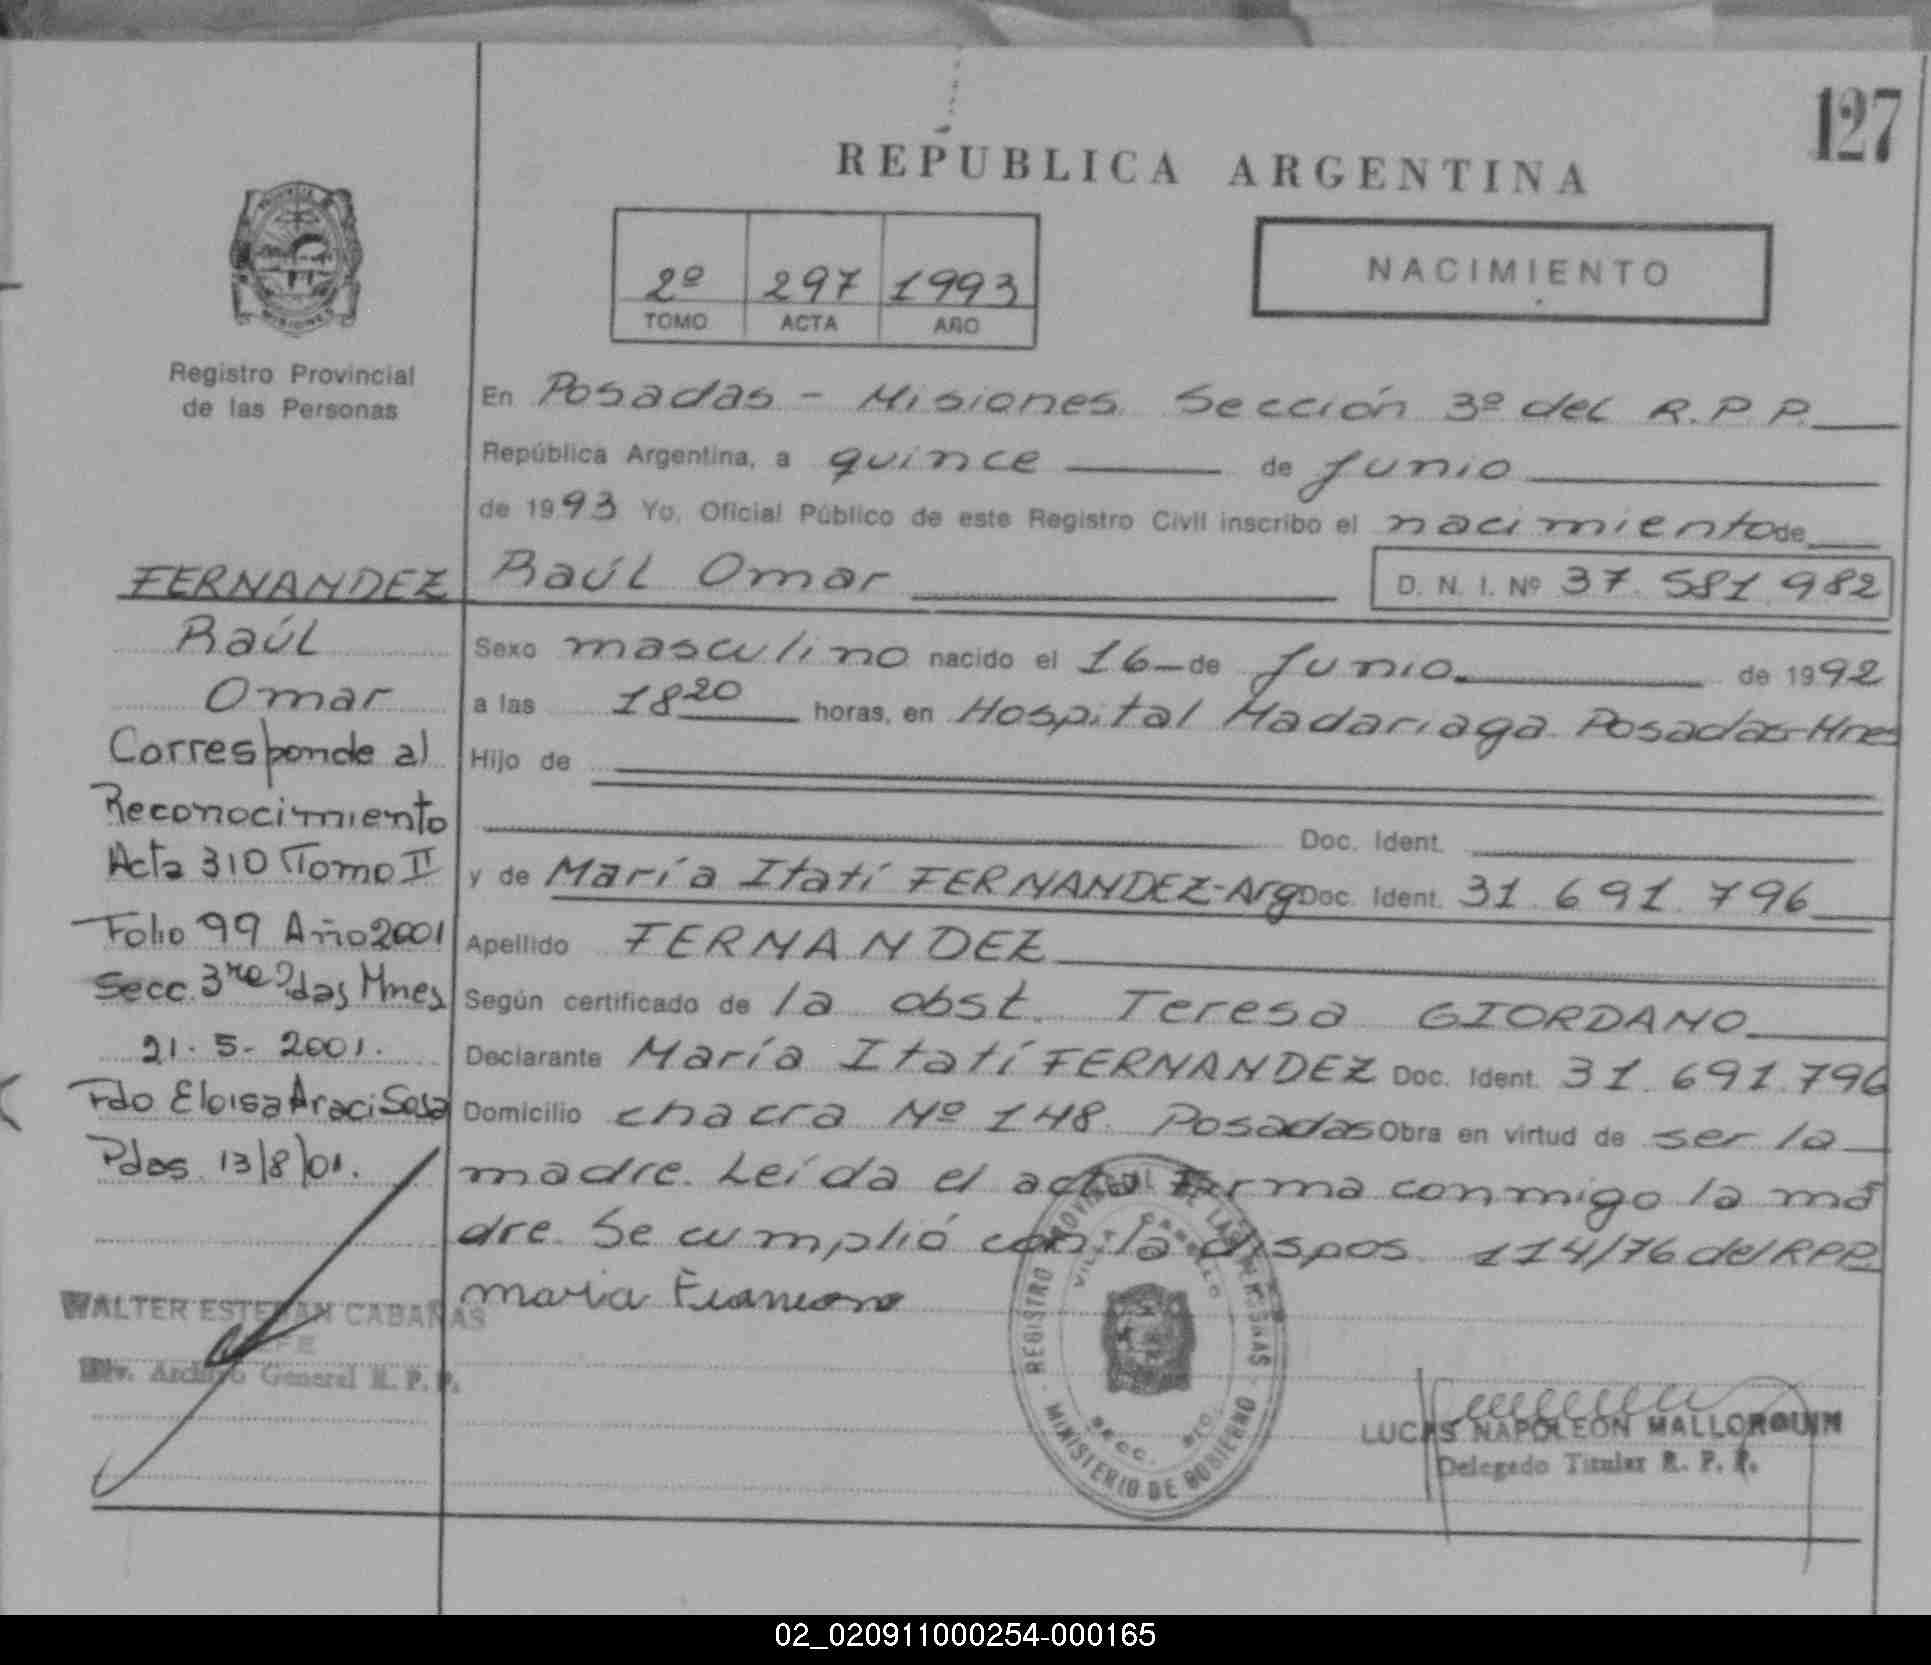 127
REPUBLICA ARGENTINA
2º 297 1993
TOMO ACTA AÑO
NACIMIENTO
MISIONES
Registro Provincial
de las Personas
En Posadas - Misiones. Sección 3º del R.P.P.
República Argentina, a quince de Junio
de 1993 Yo, Oficial Público de este Registro Civil inscribo el nacimiento de
Raúl Omar D. N. I. Nº 37.581.982
Sexo masculino nacido el 16 de Junio. de 1992
a las 18 20 horas, en Hospital Madariaga Posadas-Mnes
Hijo de
Doc. Ident.
y de María Itatí FERNANDEZ-Arg Doc. Ident. 31.691.796
Apellido FERNANDEZ
Según certificado de la obst. Teresa GIORDANO
Declarante María Itatí FERNANDEZ Doc. Ident. 31.691.796
Domicilio chacra Nº 148. Posadas Obra en virtud de ser la
madre. Leída el acta firma conmigo la ma
dre. Se cumplió con la dispos. 114/76 del R.P.P.
maria
FERNANDEZ
Raúl
Omar
Corresponde al
Reconocimiento
Acta 310 Tomo II
Folio 99 Año 2001
Secc. 3ra Pdas Mnes
21-5-2001.
Fdo Eloisa Araci Sosa
Pdas. 13/8/01.
WALTER ESTEBAN CABAÑAS
JEFE
Div. Archivo General R. P. P.
REGISTRO PROVINCIAL DE LAS PERSONAS
VILLA CABELLO
SECC.
MINISTERIO DE GOBIERNO
LUCAS NAPOLEON MALLORQUIN
Delegado Titular R. P. P.
02_020911000254-000165